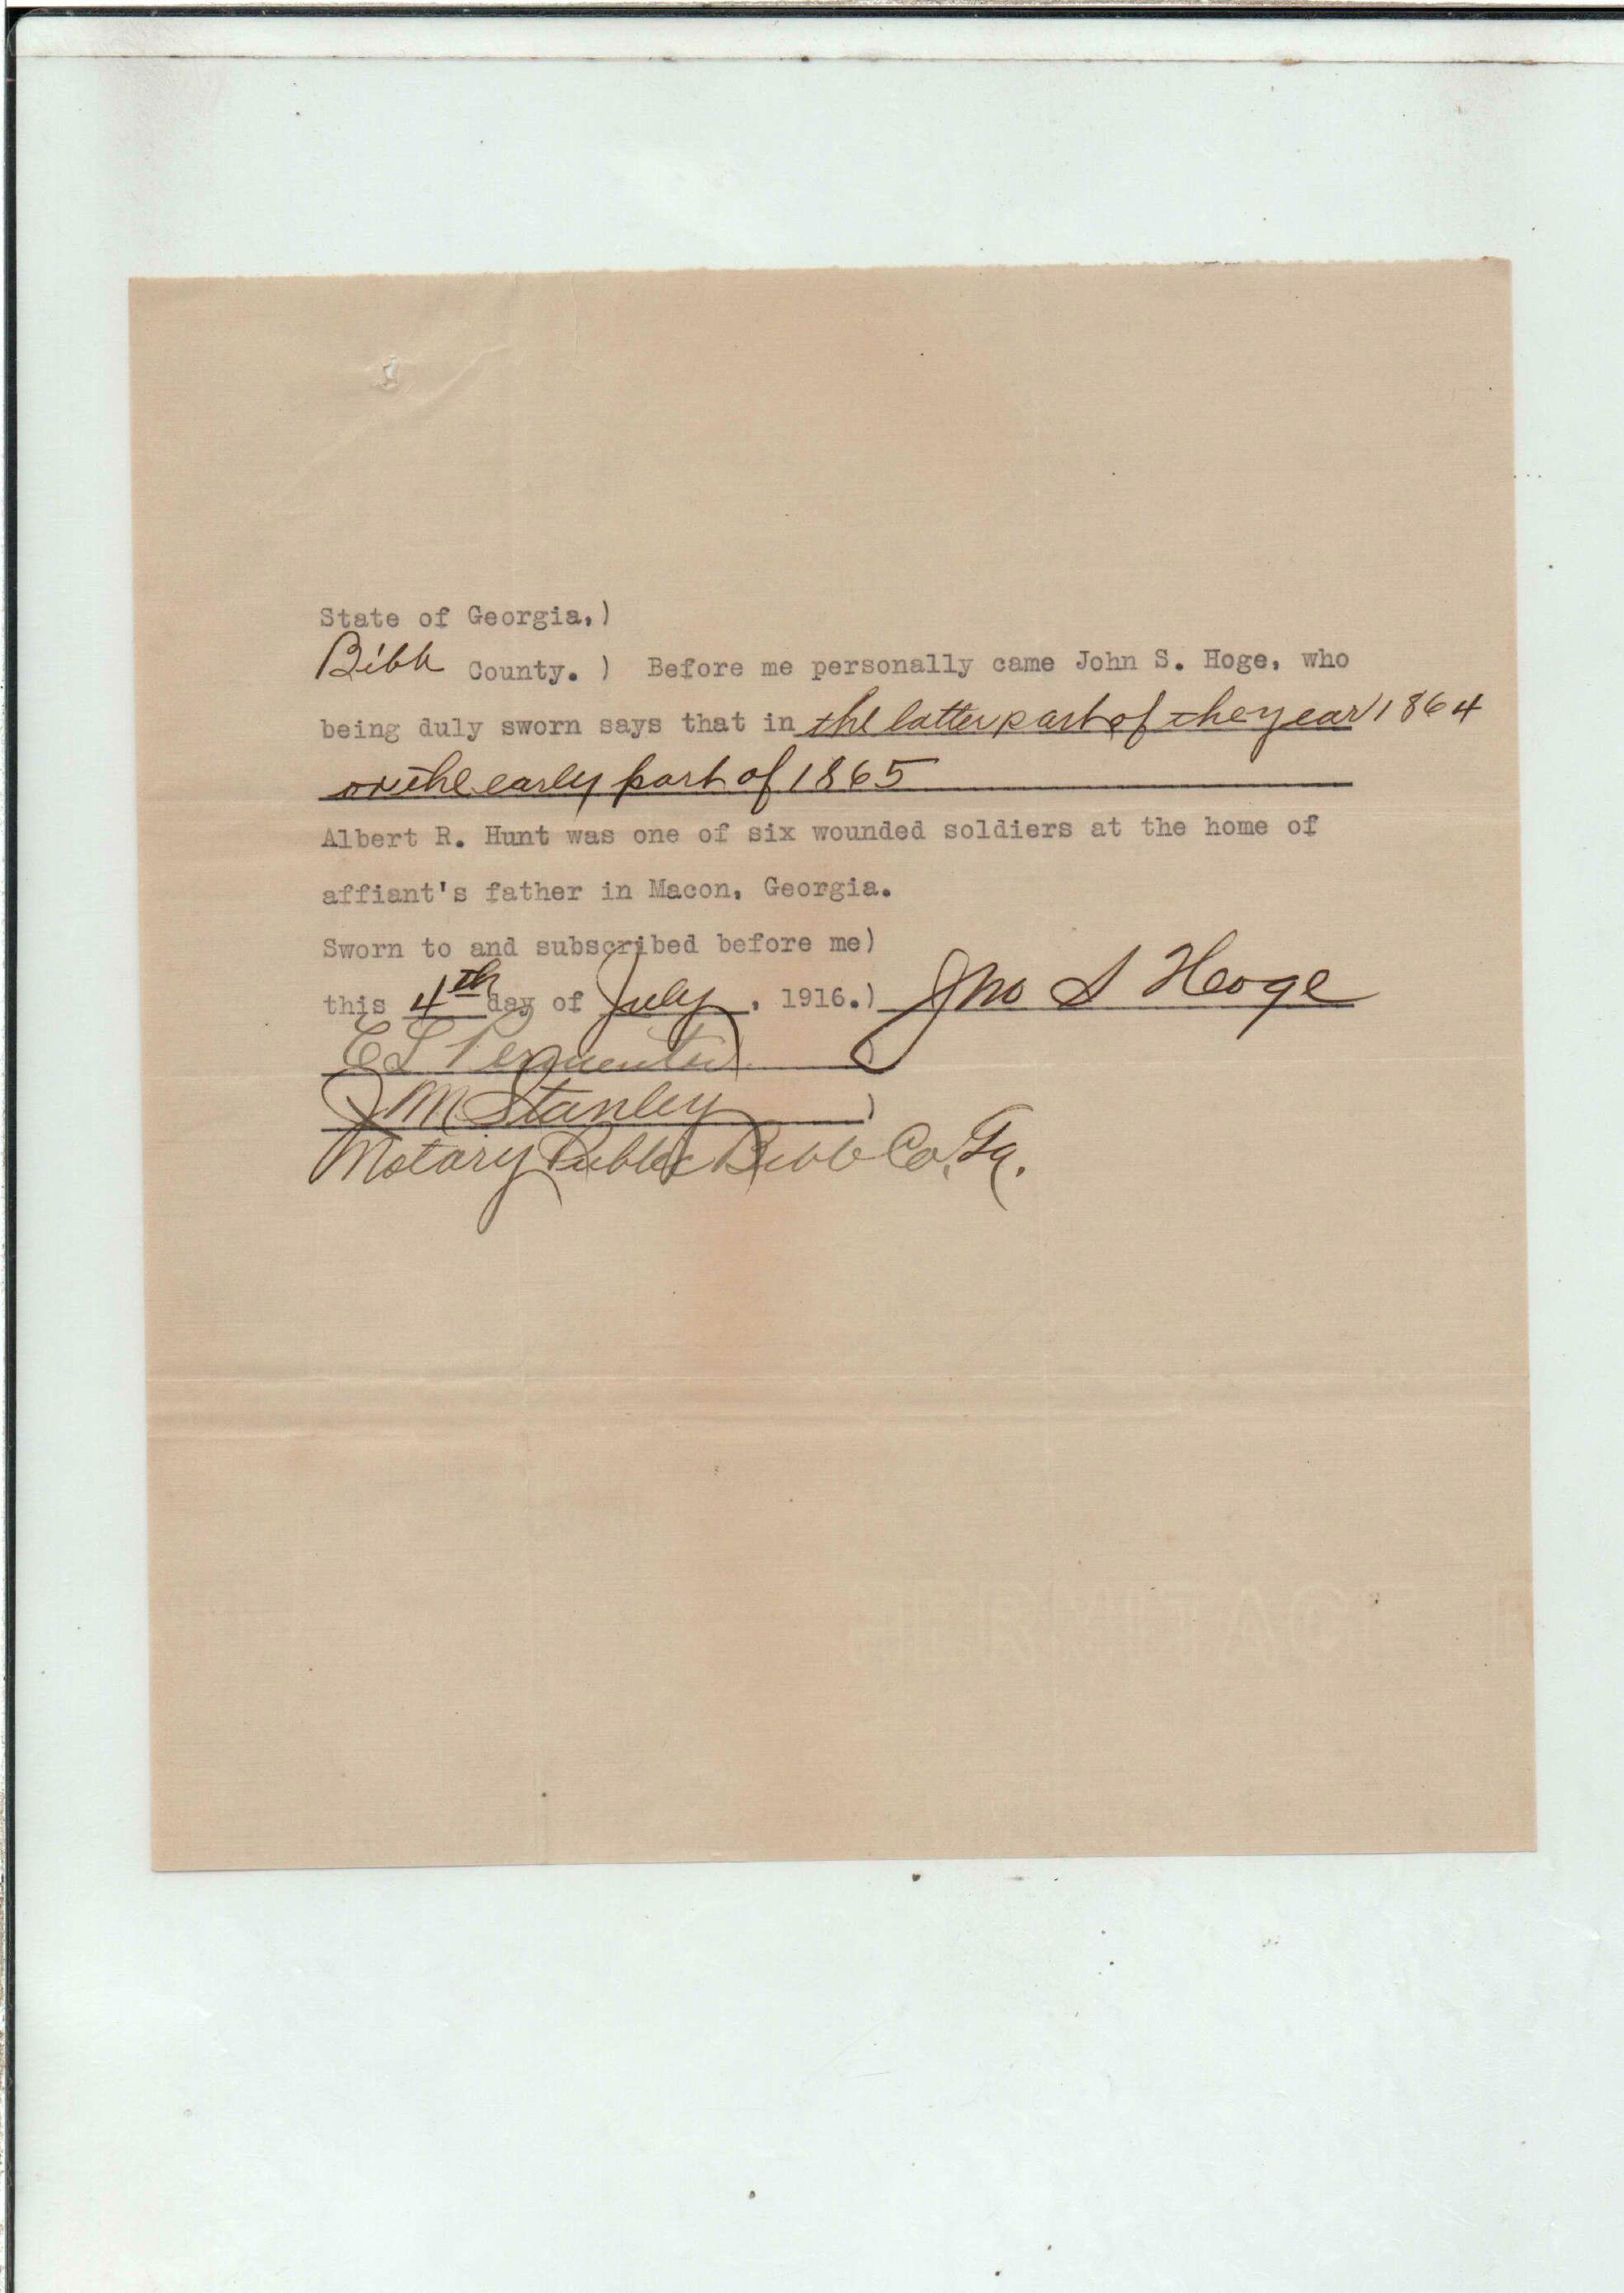 State of Georgia,)
Bibb County. ) Before me personally came John S. Hoge, who
being duly sworn says that in the latter part of the year 1864
or the early part of 1865
Albert R. Hunt was one of six wounded soldiers at the home of
affiant's father in Macon, Georgia.
Sworn to and subscribed before me)
this 4th day of July, 1916.) Jno S Hoge
E L )
J M Stanley )
Notary Public Bibb Co, Ga.